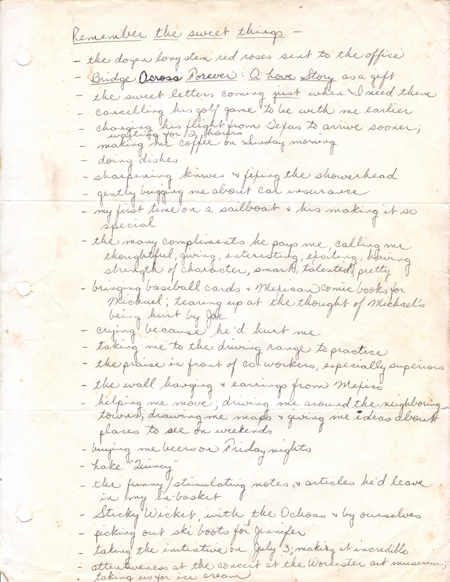 Remember the sweet things -
- the dozen long stem red roses sent to the office
- Bridge Across Forever: A Love Story as a gift
- the sweet letters coming just when I need them
- cancelling his golf game to be with me earlier
- changing his flight from Texas to arrive sooner;
waiting for 2 hours
- making me coffee on Sunday morning
- doing dishes
- sharpening knives & fixing the showerhead
- gently bugging me about car insurance
- my first time on a sailboat & his making it so
special
- the many compliments he pays me, calling me
thoughtful, giving, interesting, exciting, having
strength of character, smart, talented, pretty
- bringing baseball cards & Mexican comic books for
Michael; tearing up at the thought of Michael's
being hurt by Joe
- crying because he'd hurt me
- taking me to the driving range to practice
- the praise in front of co workers, especially superiors
- the wall hanging & earrings from Mexico
- helping me move; driving me around the neighboring
towns; drawing me maps & giving me ideas about
places to see on weekends
- buying me beers on Friday nights
- "Quincy"
- the funny/stimulating notes & articles he'd leave
in my in-basket
- Sticky Wicket with the Ochoas & by ourselves
- picking out ski boots for Jennifer
- taking the initiative on July 3; making it incredible
- attentiveness at the concert at the Worcester art museum;
taking us for ice cream